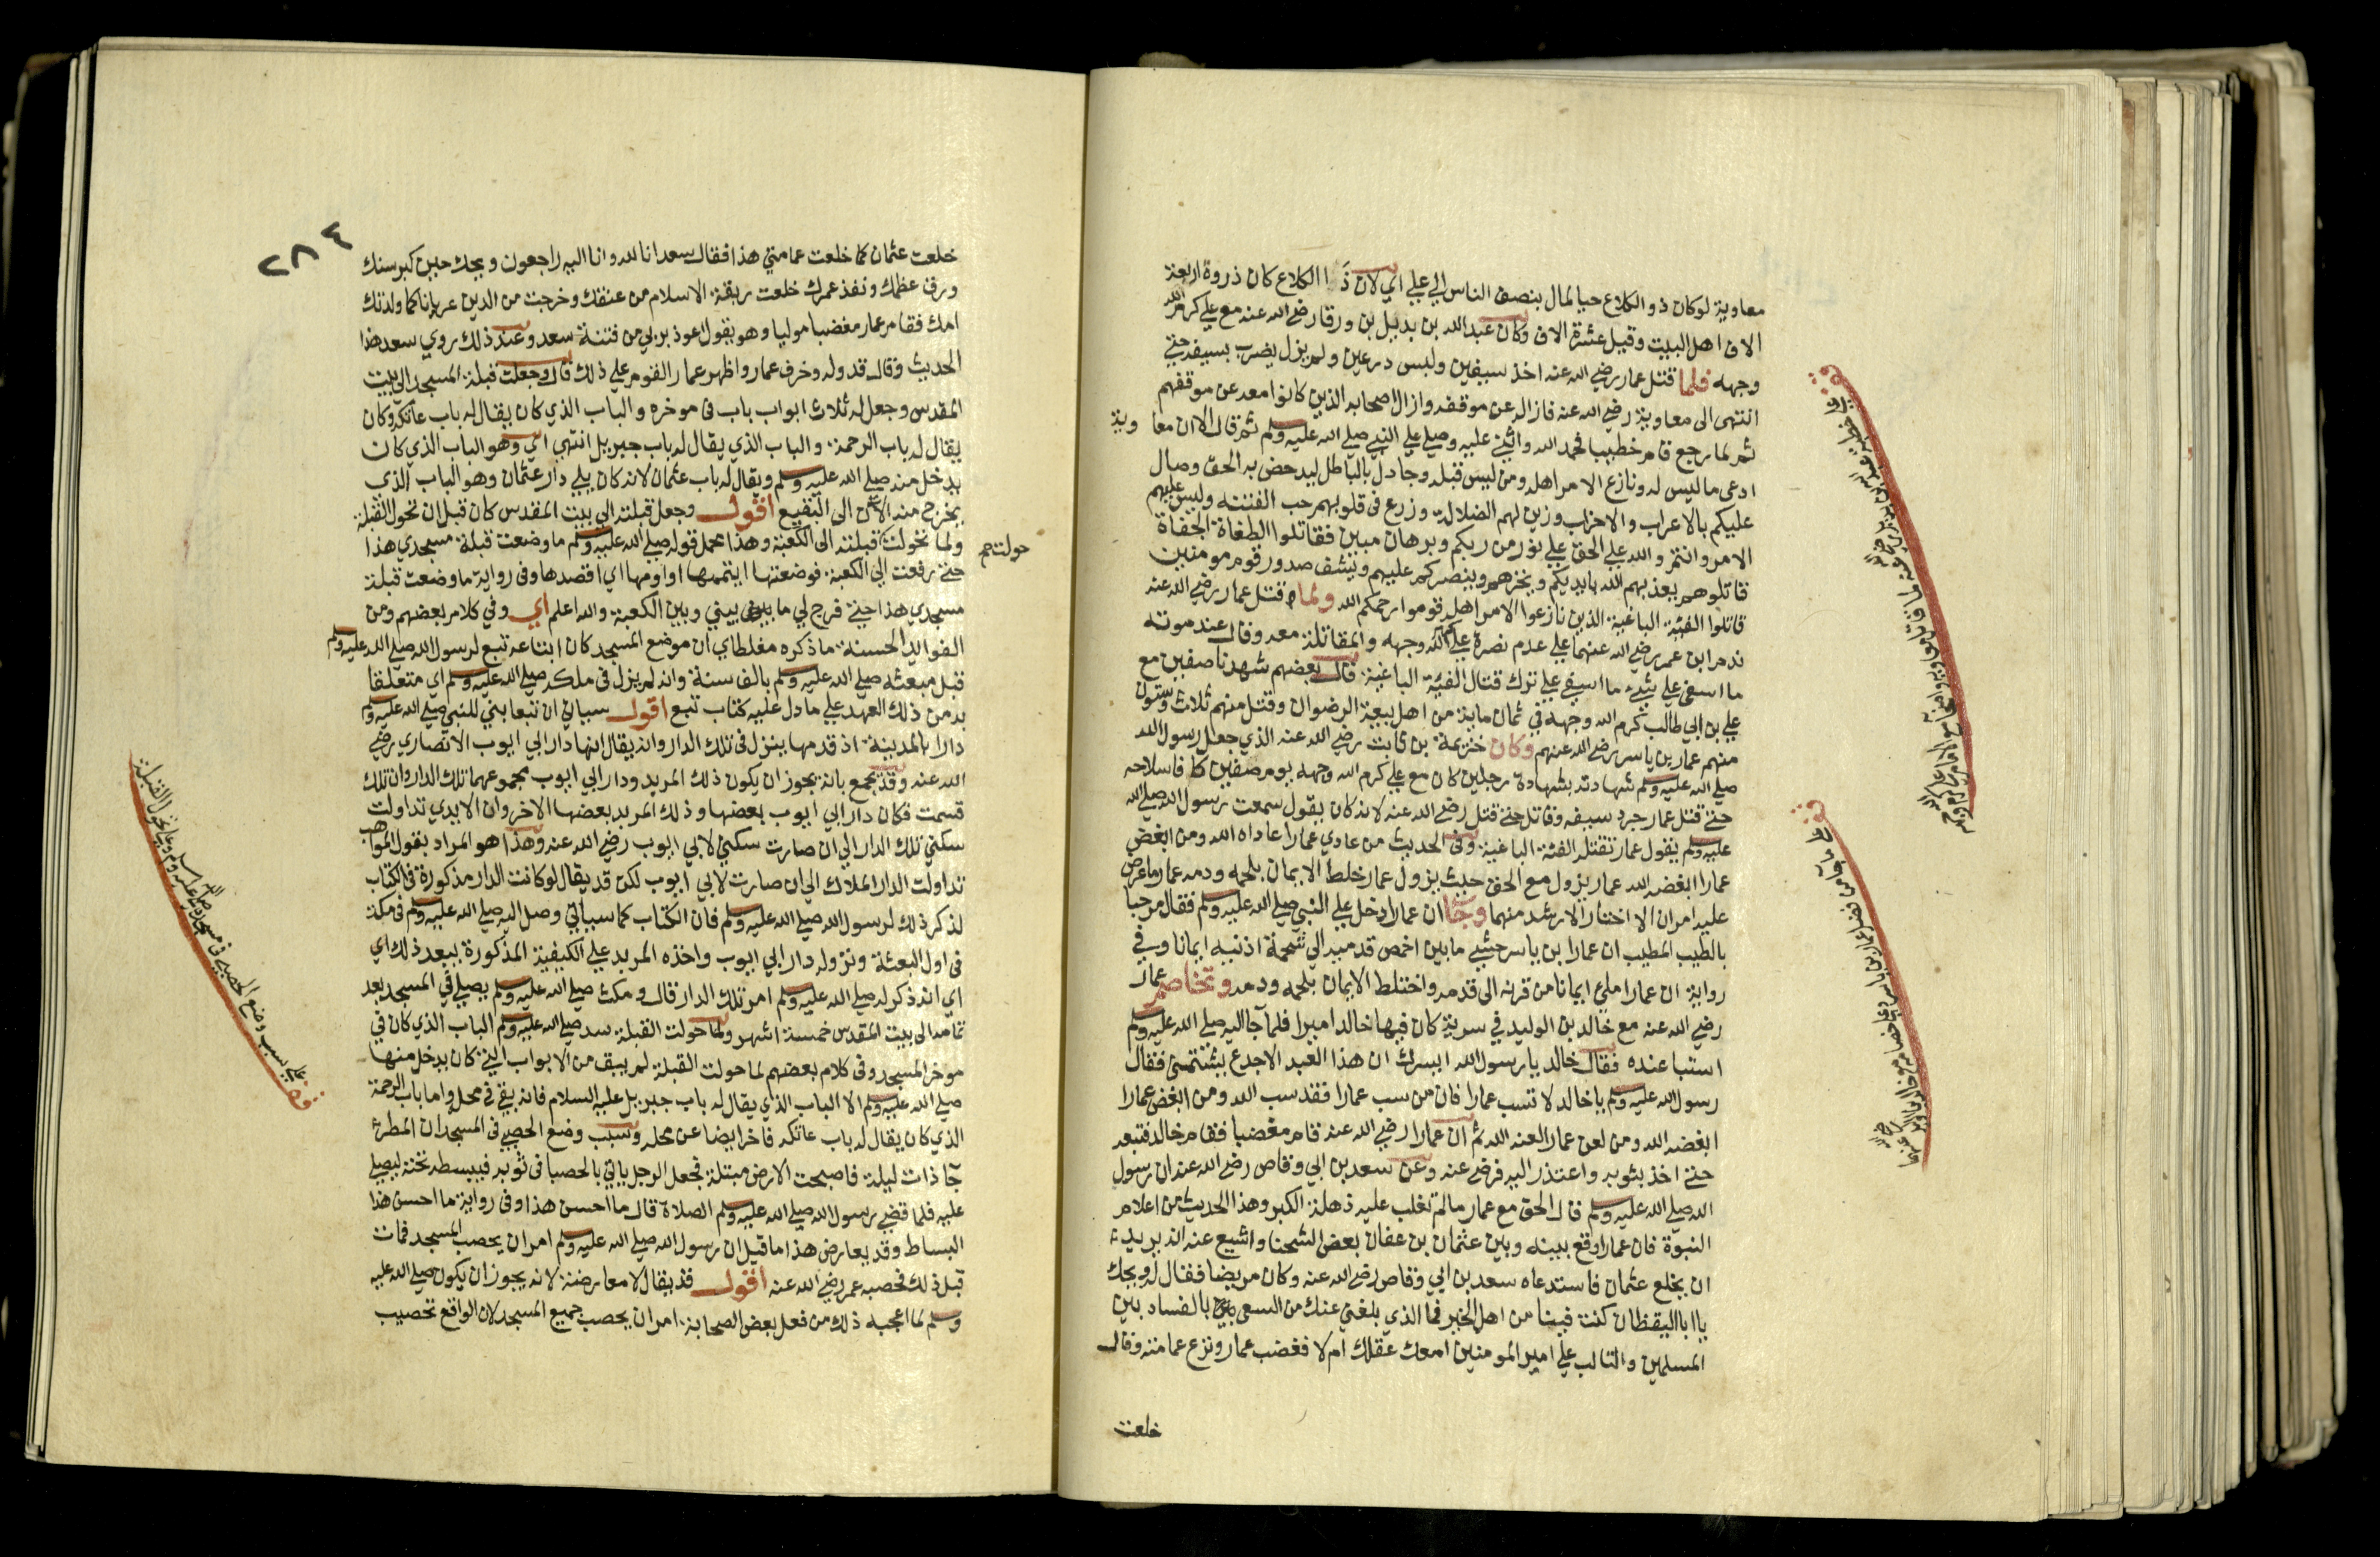 معاوية لوكان ذو الكلاع حيا لمال بنصف الناس الي علي اي لان ذا الكلاع كان ذروة اربعة
الاف اهل البيت وقيل عشرة الاف وكان عبد الله بن بديل بن ورقا رضي الله عنه مع علي كرم الله
وجهه فلما قتل عمار رضي الله عنه اخذ سيفين ولبس درعين ولم يزل يضرب بسيفه حتي
انتهى الى معاوية رضي الله عنه فازاله عن موقفه وازال اصحابه الذين كانوا معه عن موقفهم
ثم لما رجع قام خطيبا فحمد الله واثني عليه وصلي علي النبي صلي الله عليه وسلم ثم قال الا ان معاوية
ادعى ما ليس له ونازع الامر اهله ومن ليس قبله وجادل بالباطل ليدحض به الحق وصال
عليكم بالاعراب والاحزاب وزين لهم الضلالة وزرع في قلوبهم حب الفتنة ولبس عليهم
الامر وانتم والله علي الحق علي نور من ربكم وبرهان مبين فقاتلوا الطغاة الجفاة
قاتلوهم يعذبهم الله بايديكم ويخزهم وينصركم عليهم ويشف صدور قوم مومنين
قاتلوا الفئة الباغية الذين نازعوا الامر اهله قوموا رحمكم الله ولما قتل عمار رضي الله عنه
ندم ابن عمر رضي الله عنهما علي عدم نصرة علي كرم الله وجهه والمقاتلة معه وقال عند موته
ما اسفي علي شيء ما اسفي علي ترك قتال الفئة الباغية قال بعضهم شهدنا صفين مع
علي بن ابي طالب كرم الله وجهه في ثمان ماية من اهل بيعة الرضوان وقتل منهم ثلاث وستون
منهم عمار بن ياسر رضي الله عنهم وكان خزيمة بن ثابت رضي الله عنه الذي جعل رسول الله
صلي الله عليه وسلم شهادته بشهادة رجلين كان مع علي كرم الله وجهه يوم صفين كافا سلاحه
حتي قتل عمار جرد سيفه وقاتل حتي قتل رضي الله عنه لانه كان يقول سمعت رسول الله صلي الله
عليه وسلم يقول عمار تقتله الفئة الباغية وفي الحديث من عادي عمارا عاداه الله ومن ابغض
عمارا ابغضه الله عمار يزول مع الحق حيث يزول عمار خلط الايمان بلحمه ودمه عمار ما عرض
عليه امران الا اختار الارشد منهما وجا ان عمارا دخل علي النبي صلي الله عليه وسلم فقال مرحبا
بالطيب المطيب ان عمارا بن ياسر حشي ما بين اخمص قدميه الي شحمة اذنيه ايمانا وفي
رواية ان عمارا ملئ ايمانا من قرنه الى قدمه واختلط الايمان بلحمه ودمه وتخاصم عمار
رضي الله عنه مع خالد بن الوليد في سرية كان فيها خالد اميرا فلما جا اليه صلي الله عليه وسلم
استبا عنده فقال خالد يا رسول الله ايسرك ان هذا العبد الاجدع يشتمني فقال
رسول الله عليه وسلم يا خالد لا تسب عمارا فان من سب عمارا فقد سب الله ومن ابغض عمارا
ابغضه الله ومن لعن عمارا لعنه الله ثم ان عمارا رضي الله عنه قام مغضبا فقام خالد فتبعه
حتي اخذ بثوبه واعتذر اليه فرضي عنه وعن سعد بن ابي وقاص رضي الله عنه ان رسول
الله صلي الله عليه وسلم قال الحق مع عمار ما لم تغلب عليه ذهلة الكبر وهذا الحديث من اعلام
النبوة فان عمارا وقع بينه وبين عثمان بن عفان بعض الشحنا واشيع عنه انه يريد
ان يخلع عثمان فاستدعاه سعد بن ابي وقاص رضي الله عنه وكان مريضا فقال له ويحك
يا ابا اليقظان كنت فينا من اهل الخير فما الذي بلغني عنك من السعي بالفساد بين
المسلمين والتالب علي امير المومنين امعك عقلك ام لا فغضب عمار ونزع عمامته وقال
خلعت
٢٨٤
خلعت عثمان كما خلعت عمامتي هذا فقال سعد انا لله وانا اليه راجعون ويحك حين كبر سنك
ورق عظمك ونفذ عمرك خلعت ربقة الاسلام من عنقك وخرجت من الدين عريانا كما ولدتك
امك فقام عمار مغضبا موليا وهو يقول اعوذ بربي من فتنة سعد وعند ذلك روي سعد هذا
الحديث وقال قد وله وخرف عمار واظهر عمار القوم علي ذلك قال وجعلت قبلة المسجد الي بيت
المقدس وجعل له ثلاث ابواب باب في موخره والباب الذي كان يقال له باب عاتكة وكان
يقال له باب الرحمة والباب الذي يقال له باب جبريل انتهي اي وهو الباب الذي كان
يدخل منه صلي الله عليه وسلم ويقال له باب عثمان لانه كان يلي دار عثمان وهو الباب الذي
يخرج منه الان الى البقيع اقول وجعل قبلته الي بيت المقدس كان قبل ان تحول القبلة
ولما تحولت قبلته الى الكعبة وهذا محمل قوله صلي الله عليه وسلم ما وضعت قبلة مسجدي هذا
حولت صح
حتي رفعت الي الكعبة فوضعتها ايتممها او اومها اي اقصدها وفي رواية ما وضعت قبلة
مسجدي هذا حتي فرج لي ما بيني وبين الكعبة والله اعلم اي وفي كلام بعضهم ومن
الفوايد الحسنة ما ذكره مغلطاي ان موضع المسجد كان ابتاعه تبع لرسول الله صلي الله عليه وسلم
قبل مبعثه صلي الله عليه وسلم بالف سنة وانه لم يزل في ملكه صلي الله عليه وسلم اي متعلقا
به من ذلك العهد علي ما دل عليه كتاب تبع اقول سياتي ان تبعا بني للنبي صلي الله عليه وسلم
دارا بالمدينة اذ قدمها ينزل في تلك الدار وانه يقال انها دار ابي ايوب الانصاري رضي
الله عنه وقد يجمع بانه يجوز ان يكون ذلك المربد ودار ابي ايوب مجموعهما تلك الدار وان تلك
قسمت فكان دار ابي ايوب بعضها وذلك المربد بعضها الاخر وان الايدي تداولت
سكني تلك الدار الي ان صارت سكني لابي ايوب رضي الله عنه وهذا هو المراد بقول المواهب
تداولت الدار الملاك الي ان صارت لابي ايوب لكن قد يقال لو كانت الدار مذكورة في الكتاب
لذكر ذلك لرسول الله صلي الله عليه وسلم فان الكتاب كما سياتي وصل اليه صلي الله عليه وسلم في مكة
في اول البعثة ونزوله دار ابي ايوب واخذه المربد علي الكيفية المذكورة يبعد ذلك اي
اي انه ذكر له صلي الله عليه وسلم امر تلك الدار قال ومكث صلي الله عليه وسلم يصلي في المسجد بعد
تمامه الى بيت المقدس خمسة اشهر ولما حولت القبلة سد صلي الله عليه وسلم الباب الذي كان في
موخر المسجد وفي كلام بعضهم لما حولت القبلة لم يبق من الابواب التي كان يدخل منها
صلي الله عليه وسلم الا الباب الذي يقال له باب جبريل عليه السلام فانه بقي في محله واما باب الرحمة
الذي كان يقال له باب عاتكة فاخر ايضا عن محله وسبب وضع الحصي في المسجد ان المطر
جا ذات ليلة فاصبحت الارض مبتلة فجعل الرجل ياتي بالحصبا في ثوبه فيبسطه تحته ليصلي
عليه فلما قضي رسول الله صلي الله عليه وسلم الصلاة قال ما احسن هذا وفي رواية ما احسن هذا
البساط وقد يعارض هذا ما قيل ان رسول الله صلي الله عليه وسلم امر ان يحصب المسجد فمات
قبل ذلك فحصبه عمر رضي الله عنه اقول قد يقال لا معارضة لانه يجوز ان يكون صلي الله عليه
وسلم لما اعجبه ذلك من فعل بعض الصحابة امر ان يحصب جميع المسجد لان الواقع تحصيب